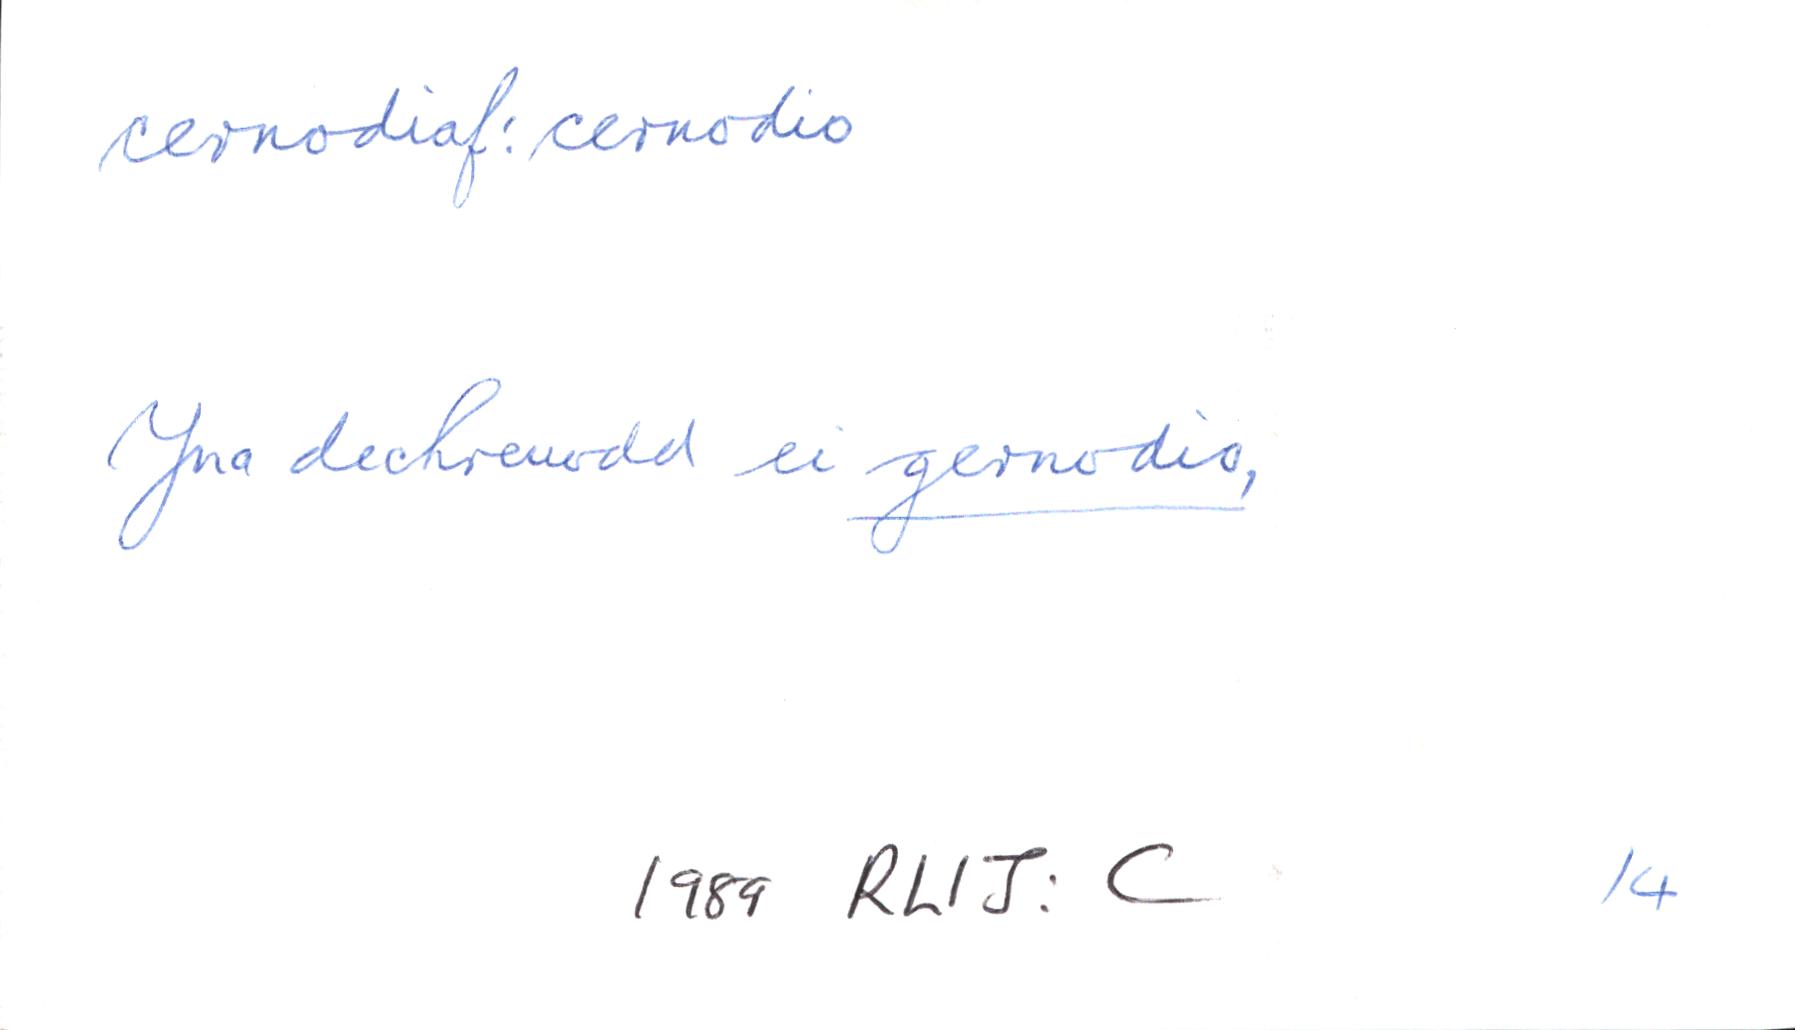 cernodiaf: cernodio
Yna dechreuodd ei gernodio,
1989 RLIJ: C 14